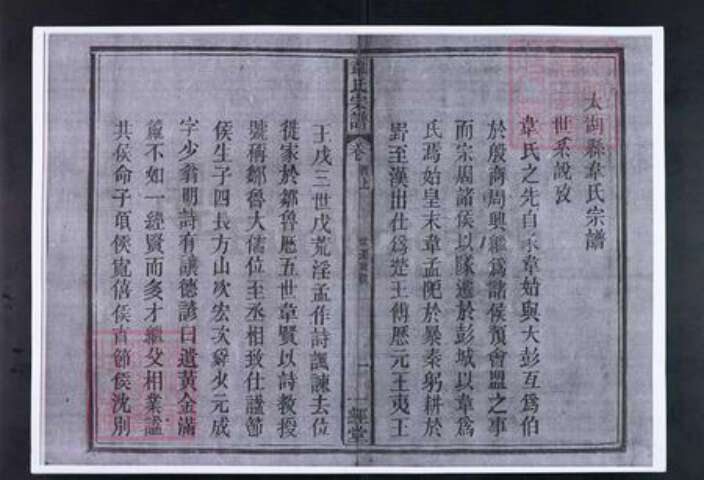 太湖縣韋氏宗譜
世系說攷
韋氏之先自豕韋始與大彭互爲伯
於殷商周興繼爲諸侯預會盟之事
而宗周諸侯以隊遷於彭城以韋爲
氏焉始皇末韋孟阨於暴秦躬耕於
野至漢出仕爲楚王傅歷元王夷王
韋氏宗譜
卷 首上
世系說攷
一
一經堂
王戊三世戊荒淫孟作詩諷諫去位
從家於鄒魯歷五世韋賢以詩教授
號稱鄒魯大儒位至丞相致仕謚節
侯生子四長方山次宏次舜少元成
字少翁明詩有讓德諺曰遺黃金滿
籯不如一經賢而多才繼父相業謚
共侯命子頃侯寬僖侯育節侯沈別